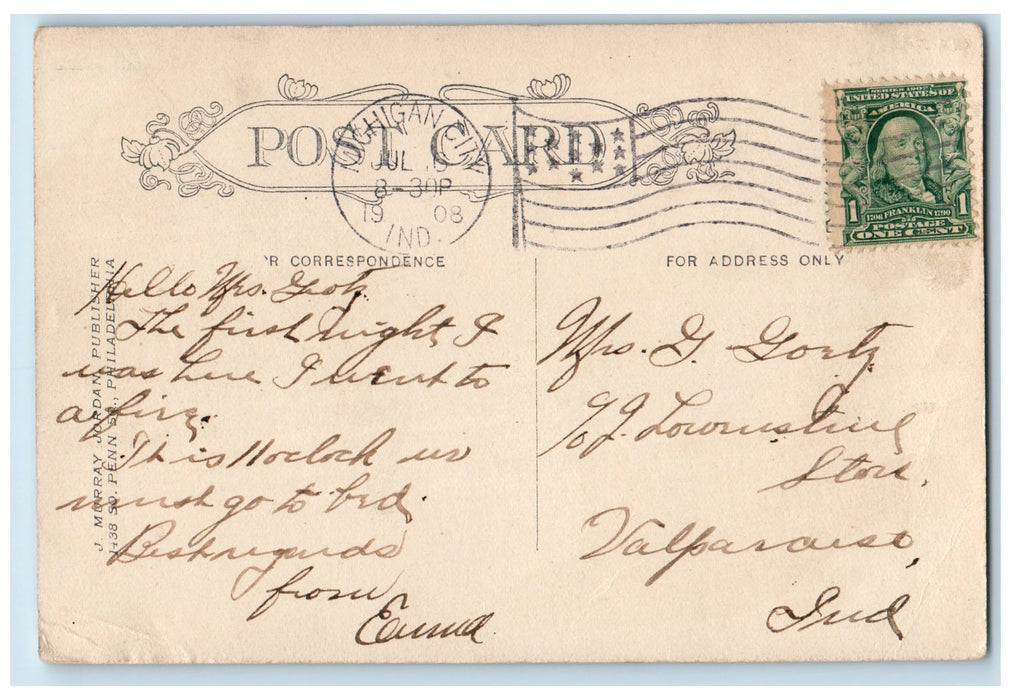 POST CARD
MICHIGAN CITY
JUL
8-30P
19 08
IND.
SERIES 1902
UNITED STATES OF
AMERICA
1706 FRANKLIN 1790
1 POSTAGE 1
ONE CENT
R CORRESPONDENCE
FOR ADDRESS ONLY
J. MURRAY JORDAN, PUBLISHER
1438 SO. PENN SQ., PHILADELPHIA
Hello Mrs. Gortz
The first night I
was here I went to
a fire.
It is 11 oclock we
must go to bed.
Best regards
from
Emma
Mrs. G. Gortz
c/o J. Lowenstine
Store,
Valparaiso,
Ind